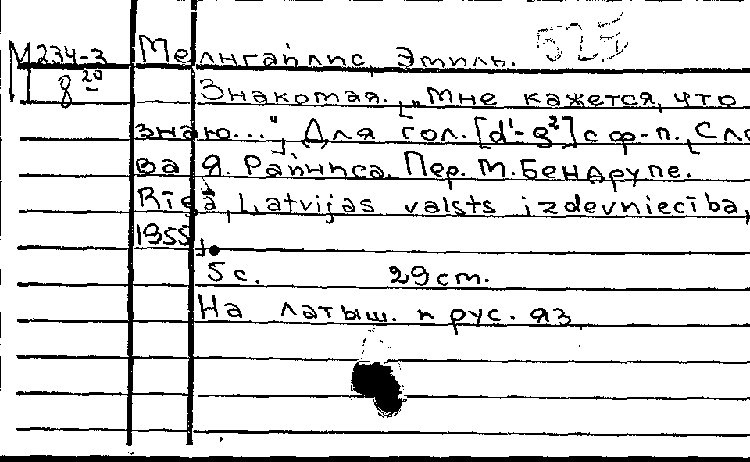 М 234-3 Мелнгайлис, Эмиль.
8 20 Знакомая. ["Мне кажется, что
знаю..."], Для гол. [d¹-g²] с ф-п., [Сло
ва Я. Райниса. Пер. М. Бендрупе.
Rīgā, Latvijas valsts izdevniecība,
1955].
5 с. 29 cm.
На латыш. и рус. яз.